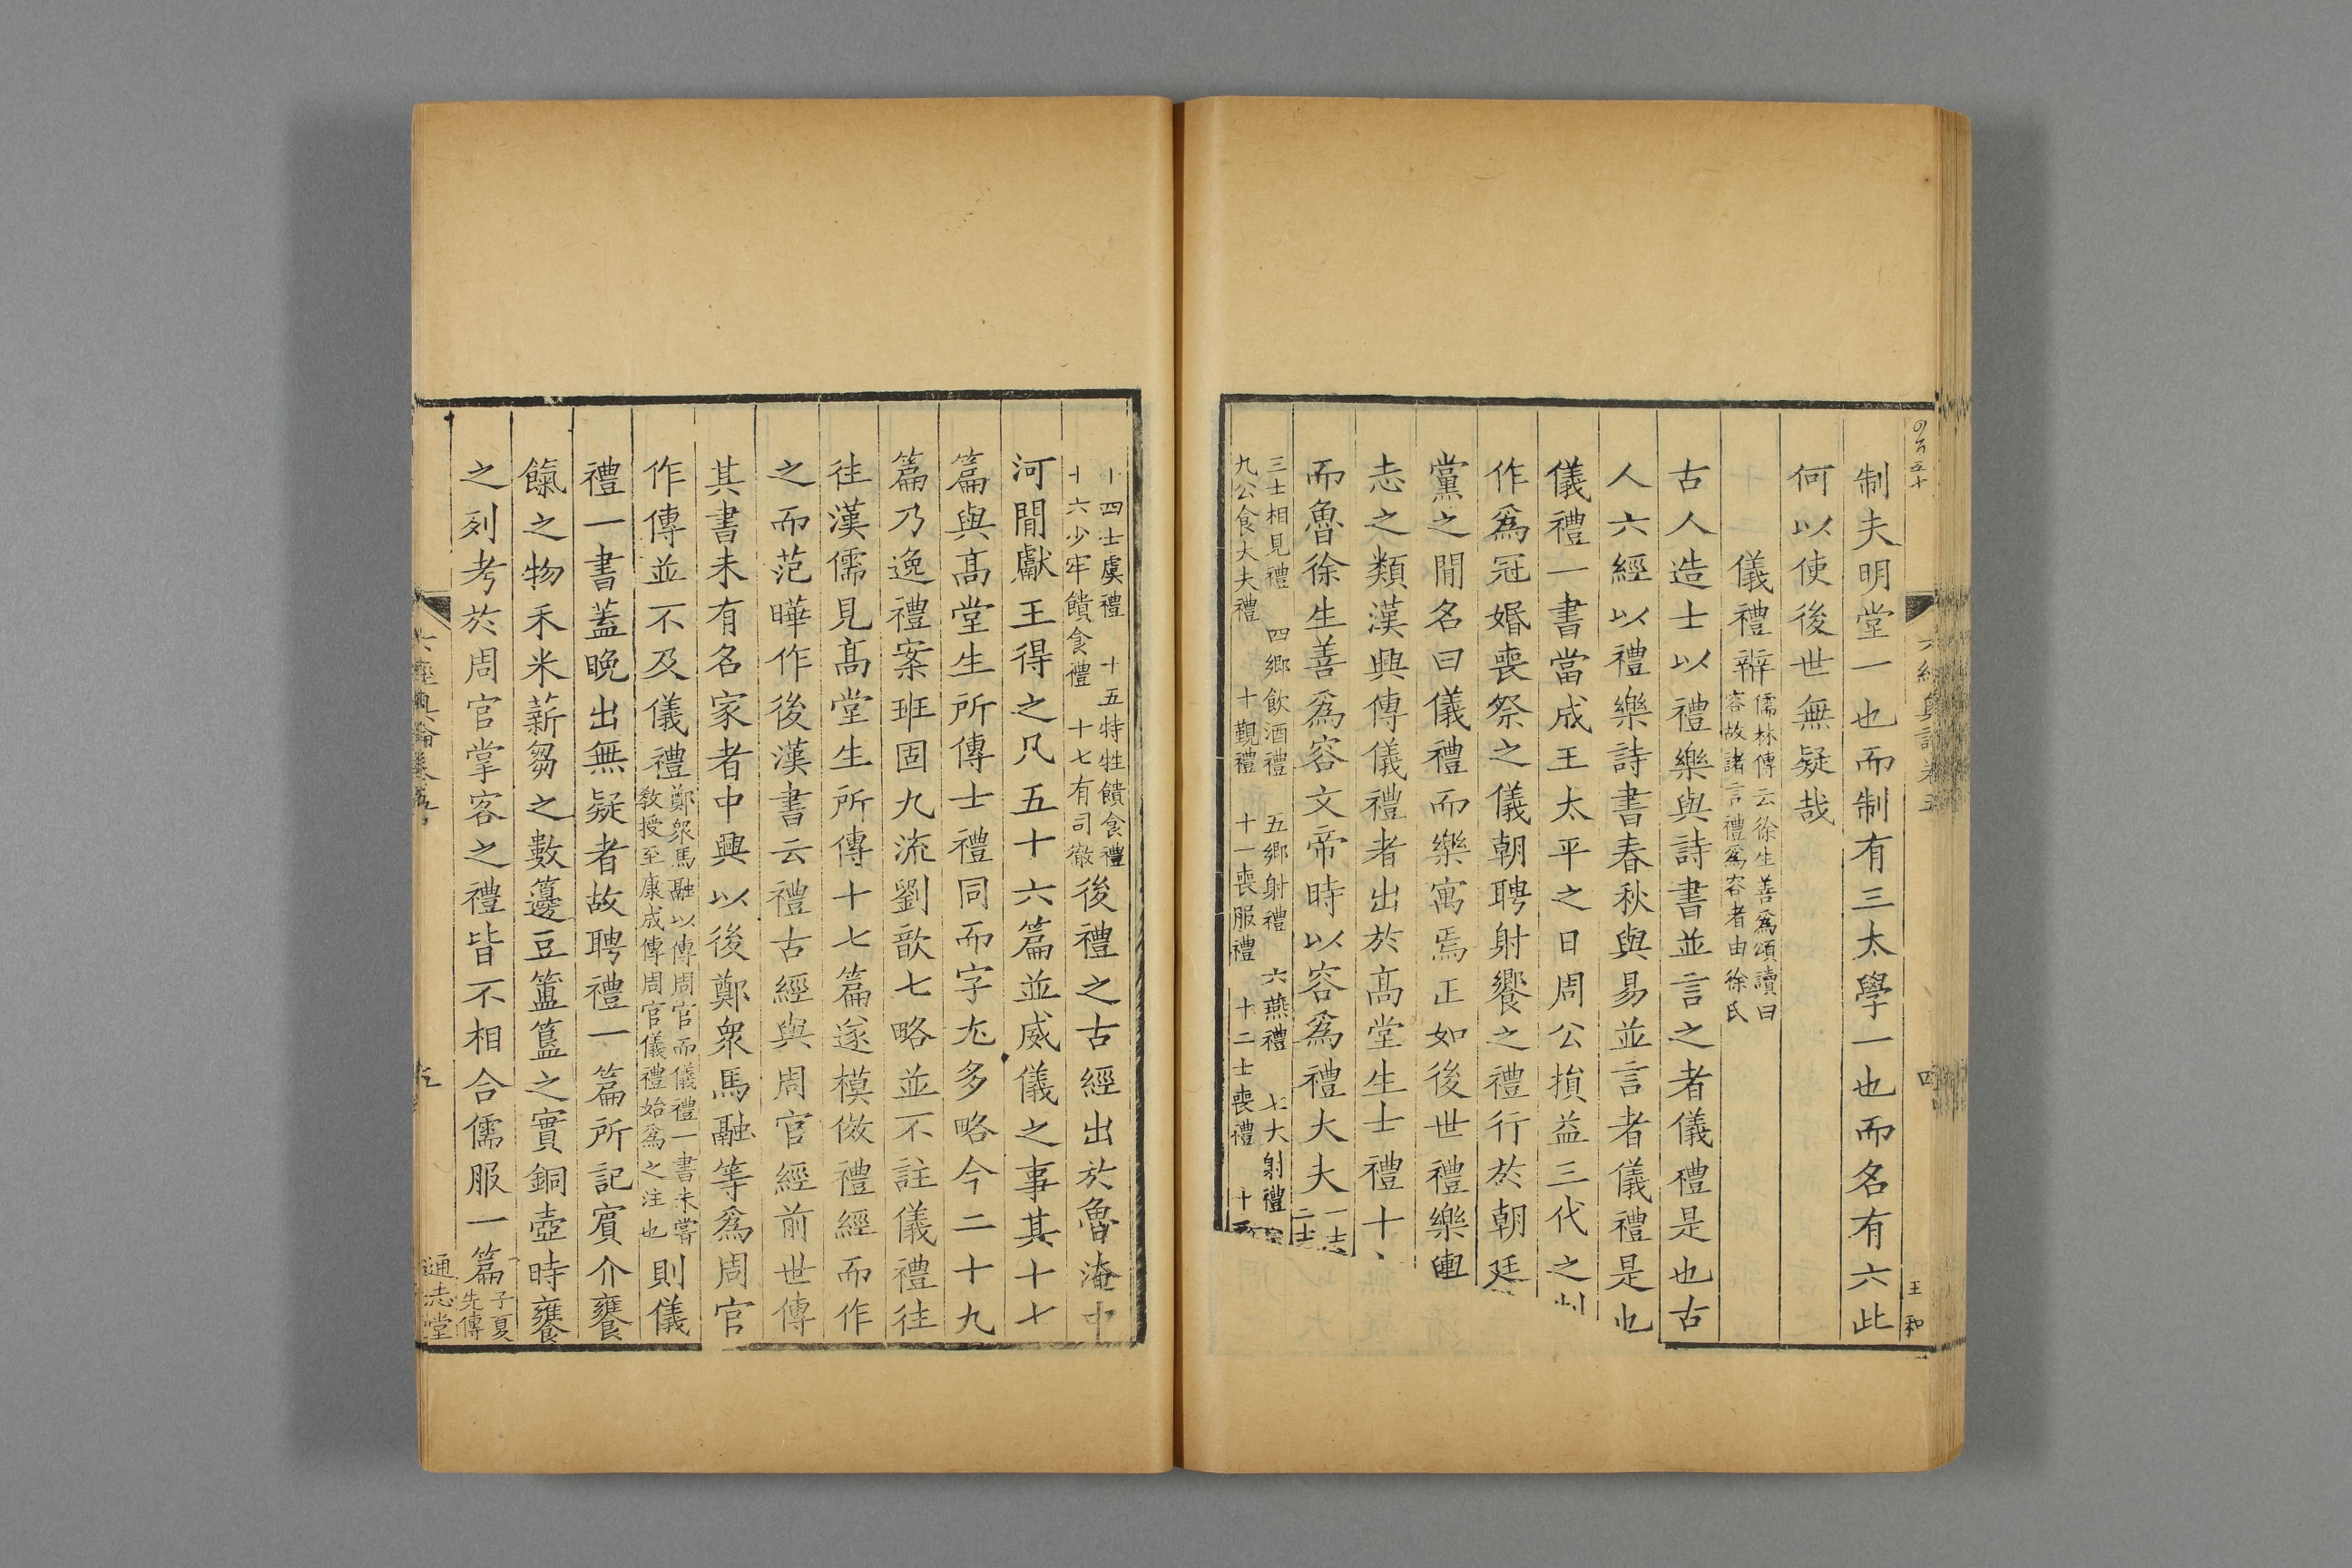 制夫明堂一也而制有三太學一也而名有六此
何以使後世無疑哉
儀禮辯
儒林傳云徐生善爲頌讀曰
容故諸言禮爲容者由徐氏
古人造士以禮樂與詩書並言之者儀禮是也古
人六經以禮樂詩書春秋與易並言者儀禮是也
儀禮一書當成王太平之日周公損益三代之
作爲冠婚喪祭之儀朝聘射饗之禮行於朝廷
黨之閒名曰儀禮而樂寓焉正如後世禮樂輿
志之類漢興傳儀禮者出於髙堂生士禮十
而魯徐生善爲容文帝時以容爲禮大夫
一士
二士
三士相見禮 四鄉飲酒禮 五鄉射禮 六燕禮 七大射禮
九公食大夫禮 十覲禮 十一喪服禮 十二士喪禮 十三
十四士虞禮 十五特牲饋食禮
十六少牢饋食禮 十七有司徹
後禮之古經出於魯淹中
河閒獻王得之凡五十六篇並威儀之事其十七
篇與髙堂生所傳士禮同而字尤多略今二十九
篇乃逸禮案班固九流劉歆七略並不註儀禮往
往漢儒見髙堂生所傳十七篇遂模倣禮經而作
之而范曄作後漢書云禮古經與周官經前世傳
其書未有名家者中興以後鄭衆馬融等爲周官
作傳並不及儀禮
鄭衆馬融以傳周官而儀禮一書未嘗
敎授至康成傳周官儀禮始爲之注也
則儀
禮一書蓋晩出無疑者故聘禮一篇所記賔介饔
餼之物禾米薪芻之數籩豆簠簋之實銅壺時饔
之列考於周官掌客之禮皆不相合儒服一篇
子夏
先傳
通志堂
六經奧論卷五
五
六經奧論卷五
四
王和